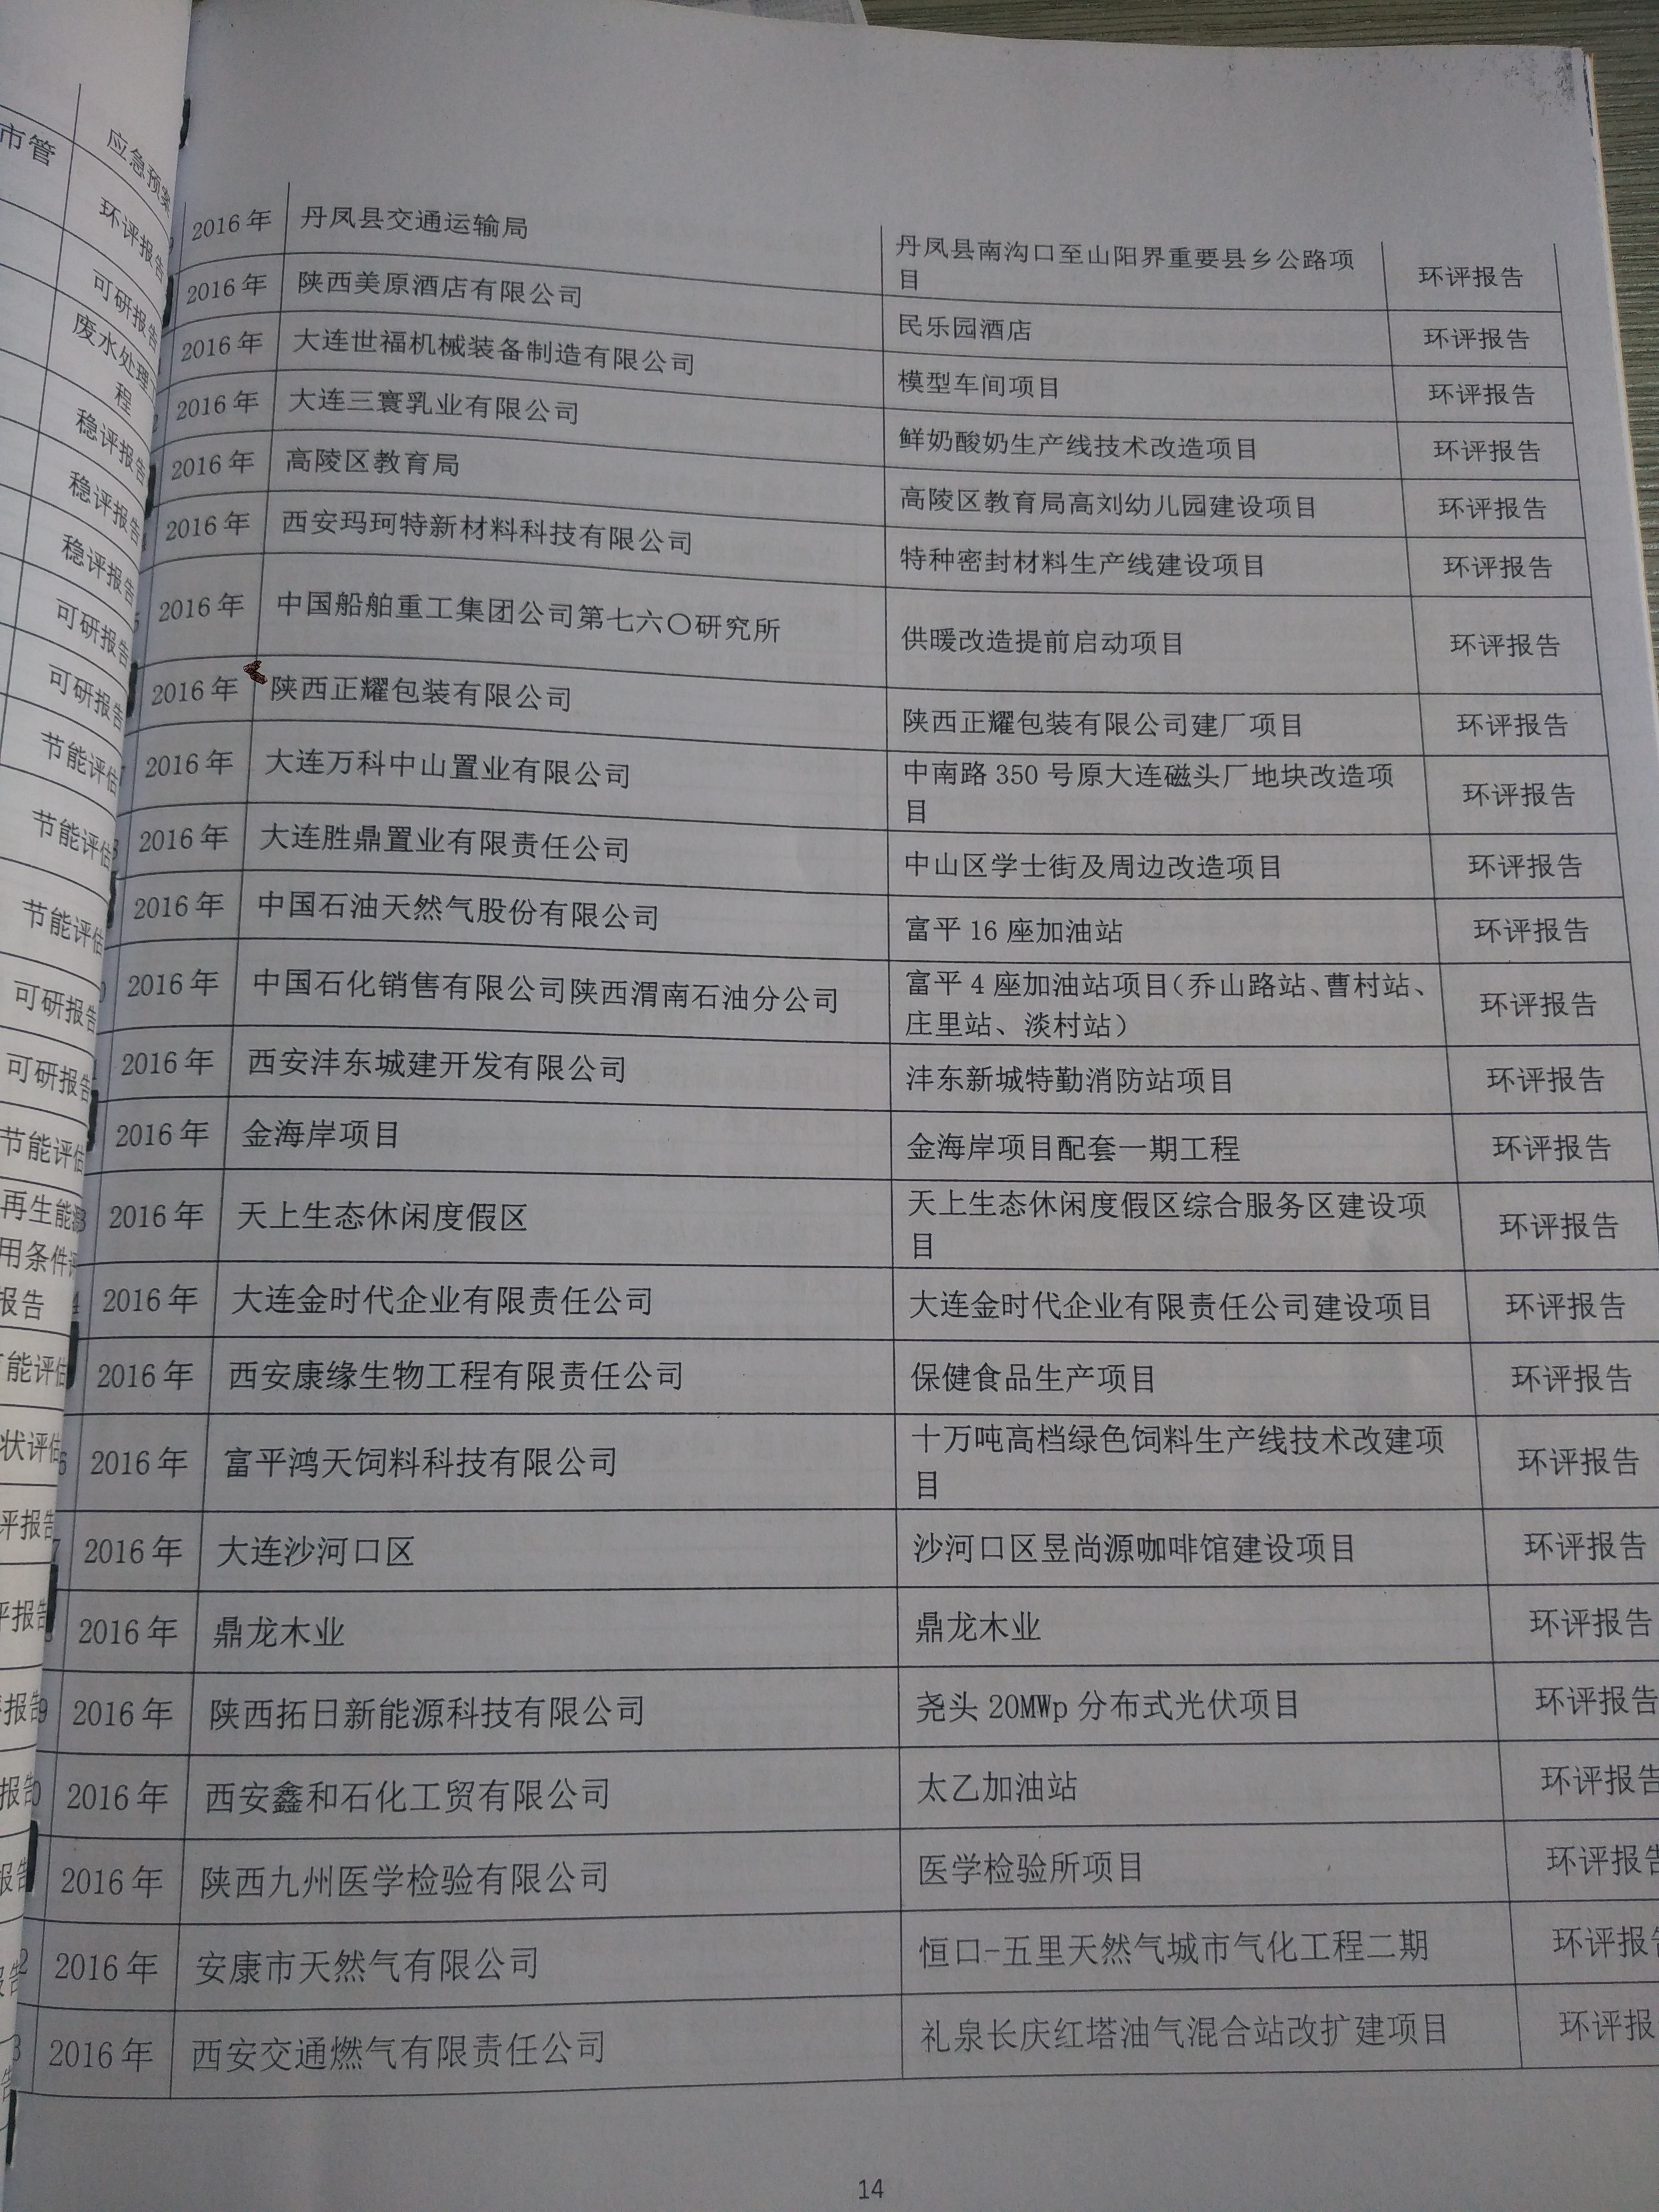 市管
应急预案
环评报告
可研报告
废水处理
程
稳评报告
稳评报告
稳评报告
可研报告
可研报告
节能评估
节能评估
节能评估
可研报告
可研报告
节能评估
再生能
用条件
报告
能评估
状评估
评报告
评报告
报告
报告
报告
2016年 丹凤县交通运输局 丹凤县南沟口至山阳界重要县乡公路项
目 环评报告
2016年 陕西美原酒店有限公司 民乐园酒店 环评报告
2016年 大连世福机械装备制造有限公司 模型车间项目 环评报告
2016年 大连三寰乳业有限公司 鲜奶酸奶生产线技术改造项目 环评报告
2016年 高陵区教育局 高陵区教育局高刘幼儿园建设项目 环评报告
2016年 西安玛珂特新材料科技有限公司 特种密封材料生产线建设项目 环评报告
2016年 中国船舶重工集团公司第七六〇研究所 供暖改造提前启动项目 环评报告
2016年 陕西正耀包装有限公司 陕西正耀包装有限公司建厂项目 环评报告
2016年 大连万科中山置业有限公司 中南路 350 号原大连磁头厂地块改造项
目 环评报告
2016年 大连胜鼎置业有限责任公司 中山区学士街及周边改造项目 环评报告
2016年 中国石油天然气股份有限公司 富平 16 座加油站 环评报告
2016年 中国石化销售有限公司陕西渭南石油分公司 富平 4 座加油站项目（乔山路站、曹村站、
庄里站、淡村站） 环评报告
2016年 西安沣东城建开发有限公司 沣东新城特勤消防站项目 环评报告
2016年 金海岸项目 金海岸项目配套一期工程 环评报告
2016年 天上生态休闲度假区 天上生态休闲度假区综合服务区建设项
目 环评报告
2016年 大连金时代企业有限责任公司 大连金时代企业有限责任公司建设项目 环评报告
2016年 西安康缘生物工程有限责任公司 保健食品生产项目 环评报告
2016年 富平鸿天饲料科技有限公司 十万吨高档绿色饲料生产线技术改建项
目 环评报告
2016年 大连沙河口区 沙河口区昱尚源咖啡馆建设项目 环评报告
2016年 鼎龙木业 鼎龙木业 环评报告
2016年 陕西拓日新能源科技有限公司 尧头 20MWp 分布式光伏项目 环评报告
2016年 西安鑫和石化工贸有限公司 太乙加油站 环评报告
2016年 陕西九州医学检验有限公司 医学检验所项目 环评报告
2016年 安康市天然气有限公司 恒口-五里天然气城市气化工程二期 环评报告
2016年 西安交通燃气有限责任公司 礼泉长庆红塔油气混合站改扩建项目 环评报
14